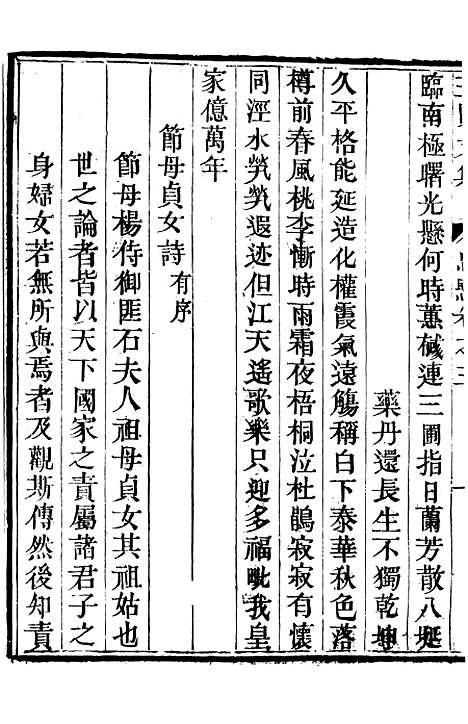 臨南極曙光懸何時蕙棫連三圃指日蘭芳散八埏
藥丹還長生不獨乾坤
久平格能延造化權霞氣遠觴稱白下泰華秋色落
樽前春風桃李慚時雨霜夜梧桐泣杜鵑寂寂有懷
同涇水煢煢遐迹但江天遙歌樂只迎多福毗我皇
家億萬年
節母貞女詩有序
節母楊侍御匪石夫人祖母貞女其祖姑也
世之論者皆以天下國家之責屬諸君子之
身婦女若無所與焉者及觀斯傳然後知責